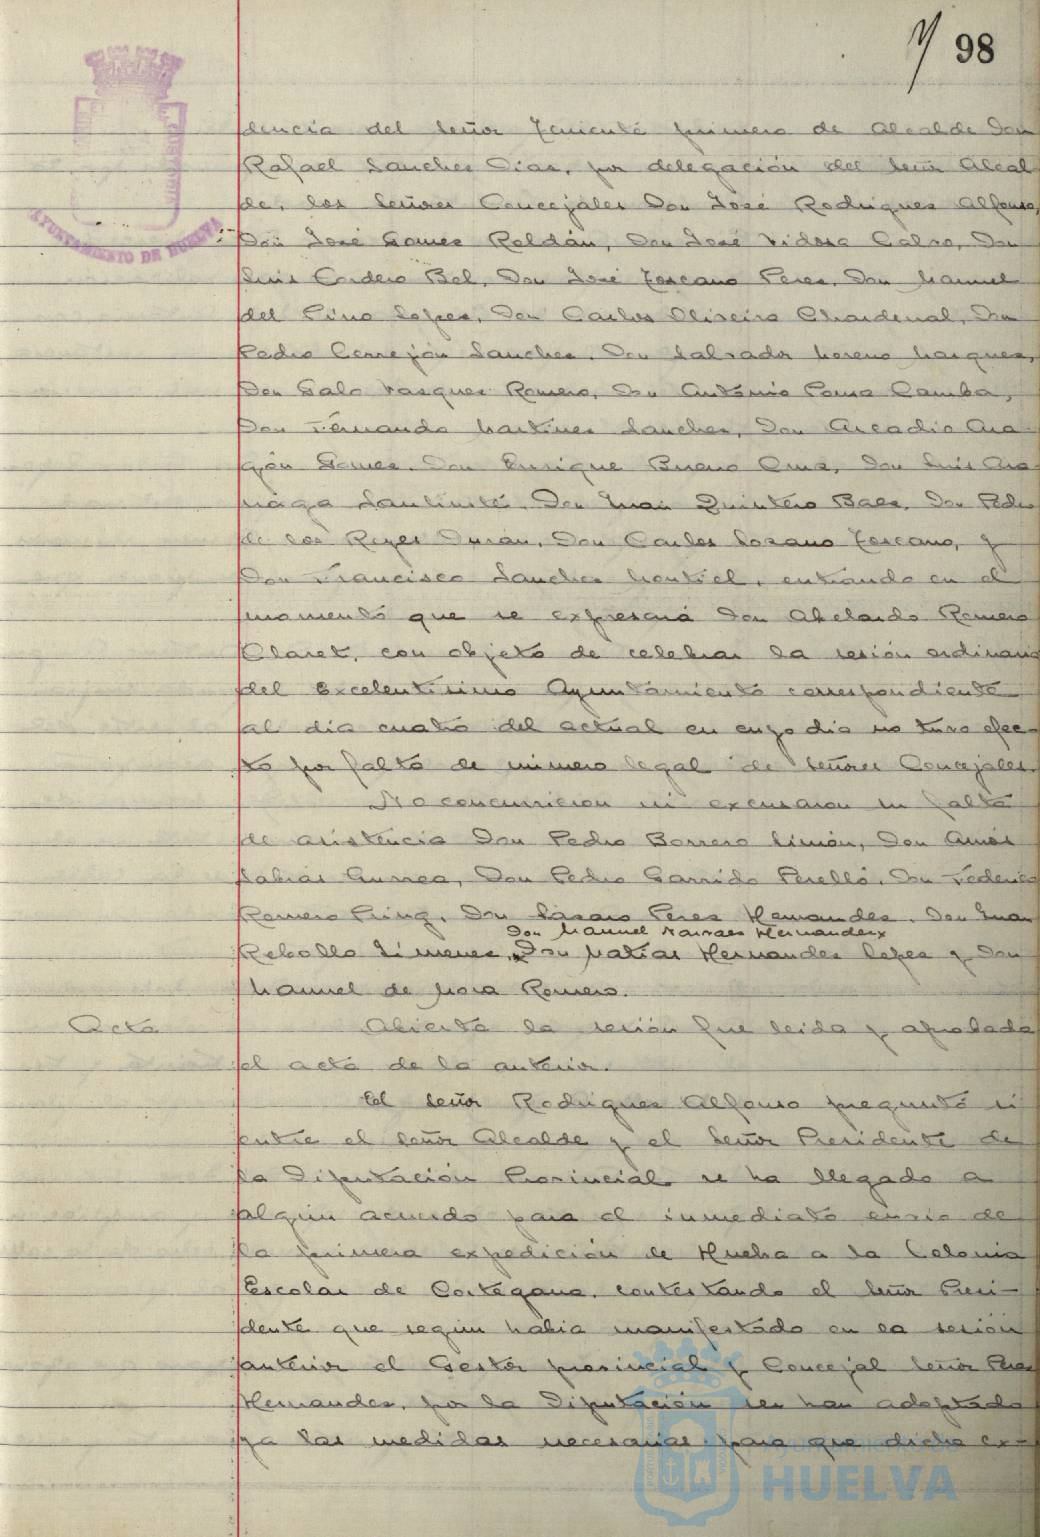 98
AYUNTAMIENTO DE HUELVA
dencia del Señor Teniente primero de Alcalde Don
Rafael Sanchez Diaz, por delegación del Señor Alcal
de, los Señores Concejales Don José Rodriguez Alfonso,
Don José Gomez Roldán, Don José Vidosa Calvo, Don
Luis Cordero Bel, Don José Toscano Perez, Don Manuel
del Pino Lopez, Don Carlos Oliveira Chardenal, Don
Pedro Cerrejón Sanchez, Don Salvador Moreno Marquez,
Don Galo Vazquez Romero, Don Antonio Pousa Camba,
Don Fernando Martinez Sanchez, Don Arcadio Ara-
gón Gomez, Don Enrique Bueno Cruz, Don Luis
Don Juan Quintero Baez, Don Pedro
de los Reyes Durán, Don Carlos Lozano Toscano, y
Don Francisco Sanchez Montiel, entrando en el
momento que se expresará Don Abelardo Romero
Claret, con objeto de celebrar la sesión ordinaria
del Excelentisimo Ayuntamiento correspondiente
al dia cuatro del actual en cuyo dia no tuvo efec-
to por falta de número legal de Señores Concejales.
No concurrieron ni excusaron su falta
de asistencia Don Pedro Borrero Limón, Don Amós
Sabrás Gurrea, Don Pedro Garrido Perelló, Don Federico
Romero Don Lazaro Perez Hernandez, Don Juan
Don Manuel Narvaez Hernandez x
Rebollo Jimenez, x Don Matias Hernandez Lopez y Don
Manuel de Mora Romero.
Acta
Abierta la sesión fue leida y aprobada
el acta de la anterior.
El Señor Rodriguez Alfonso preguntó si
entre el Señor Alcalde y el Señor Presidente de
la Diputación Provincial se ha llegado a
algún acuerdo para el inmediato envio de
la primera expedición de Huelva a la Colonia
Escolar de Cortegana, contestando el Señor Presi-
dente que según habia manifestado en la sesión
anterior el Gestor provincial y Concejal Señor Perez
Hernandez, por la Diputación se han adoptado
ya las medidas necesarias para que dicha ex-
Ayuntamiento de
HUELVA